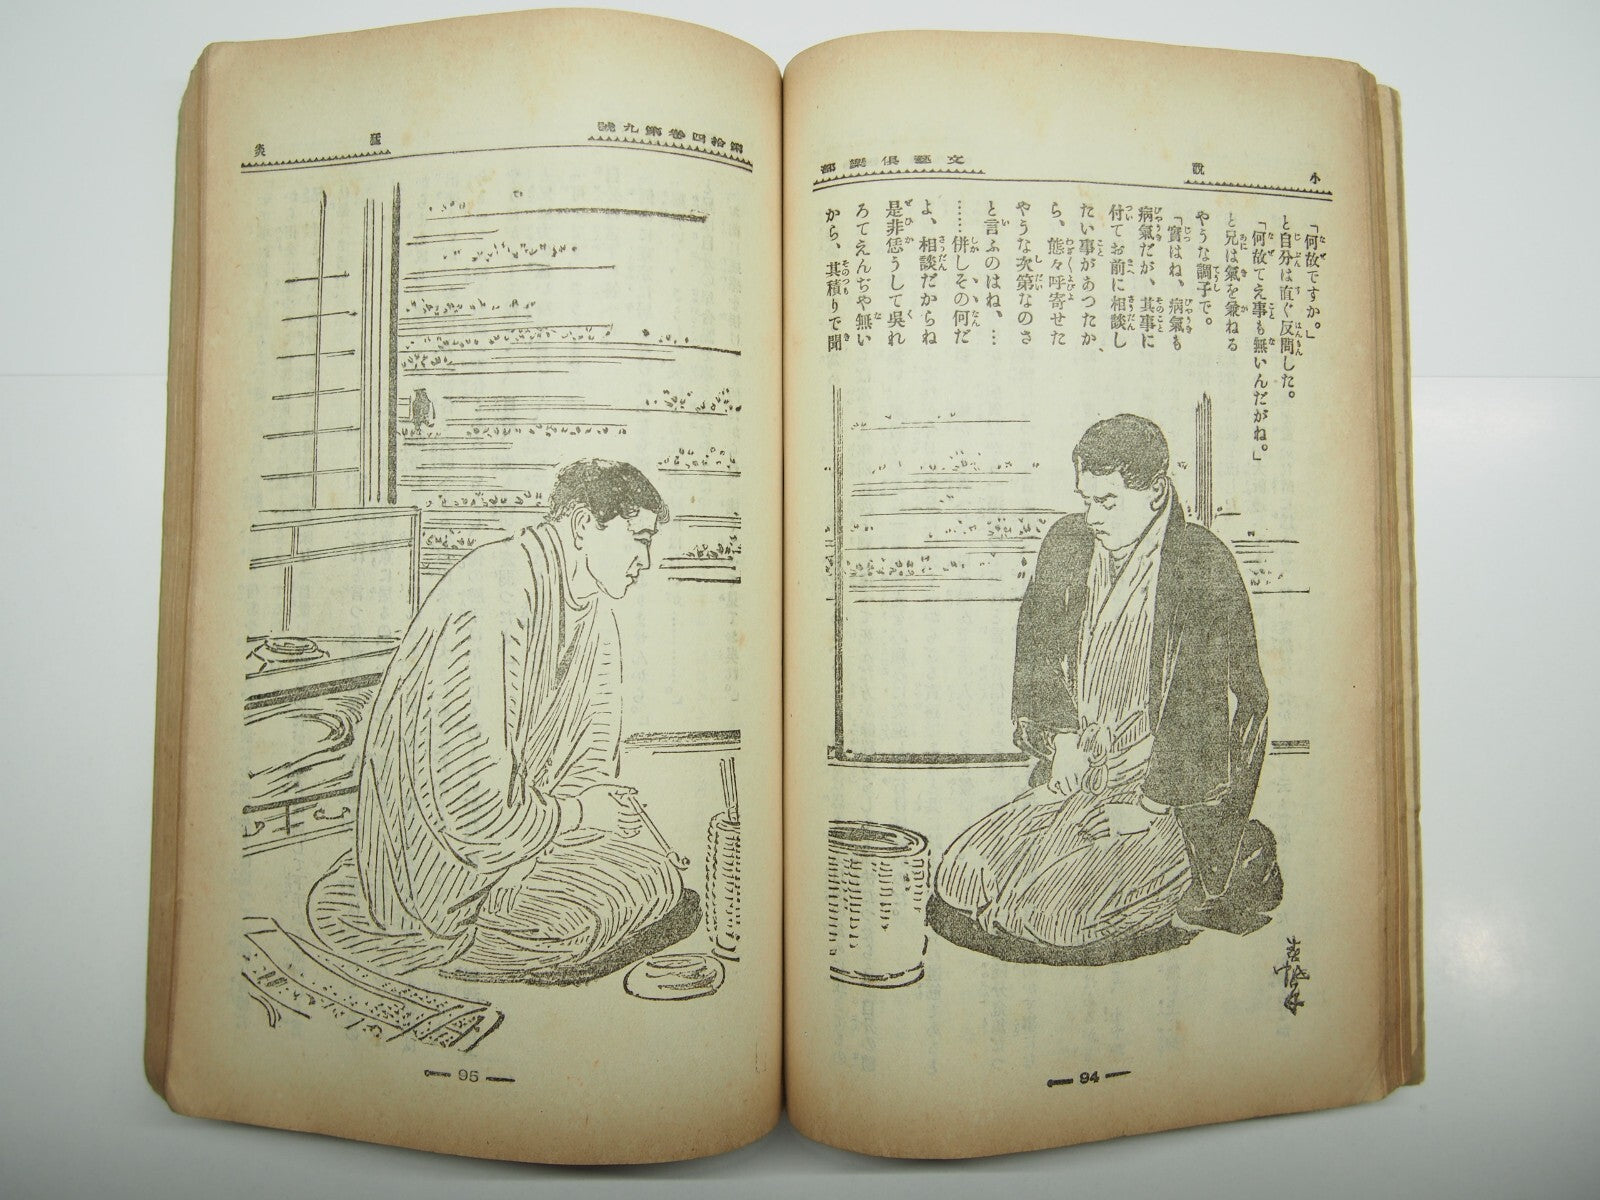 小說
文藝俱樂部
「何故ですか。」
と自分は直ぐ反問した。
「何故てえ事も無いんだがね。」
と兄は氣を兼ねる
やうな調子で。
「實はね、病氣も
病氣だが、其事に
付てお前に相談し
たい事があつたか、
ら、態々呼寄せた
やうな次第なのさ
と言ふのはね、…
……併しその何だ
よ、相談だからね
是非恁うして吳れ
ろてえんぢや無い
から、其積りで聞
94
第拾四卷第九號
95